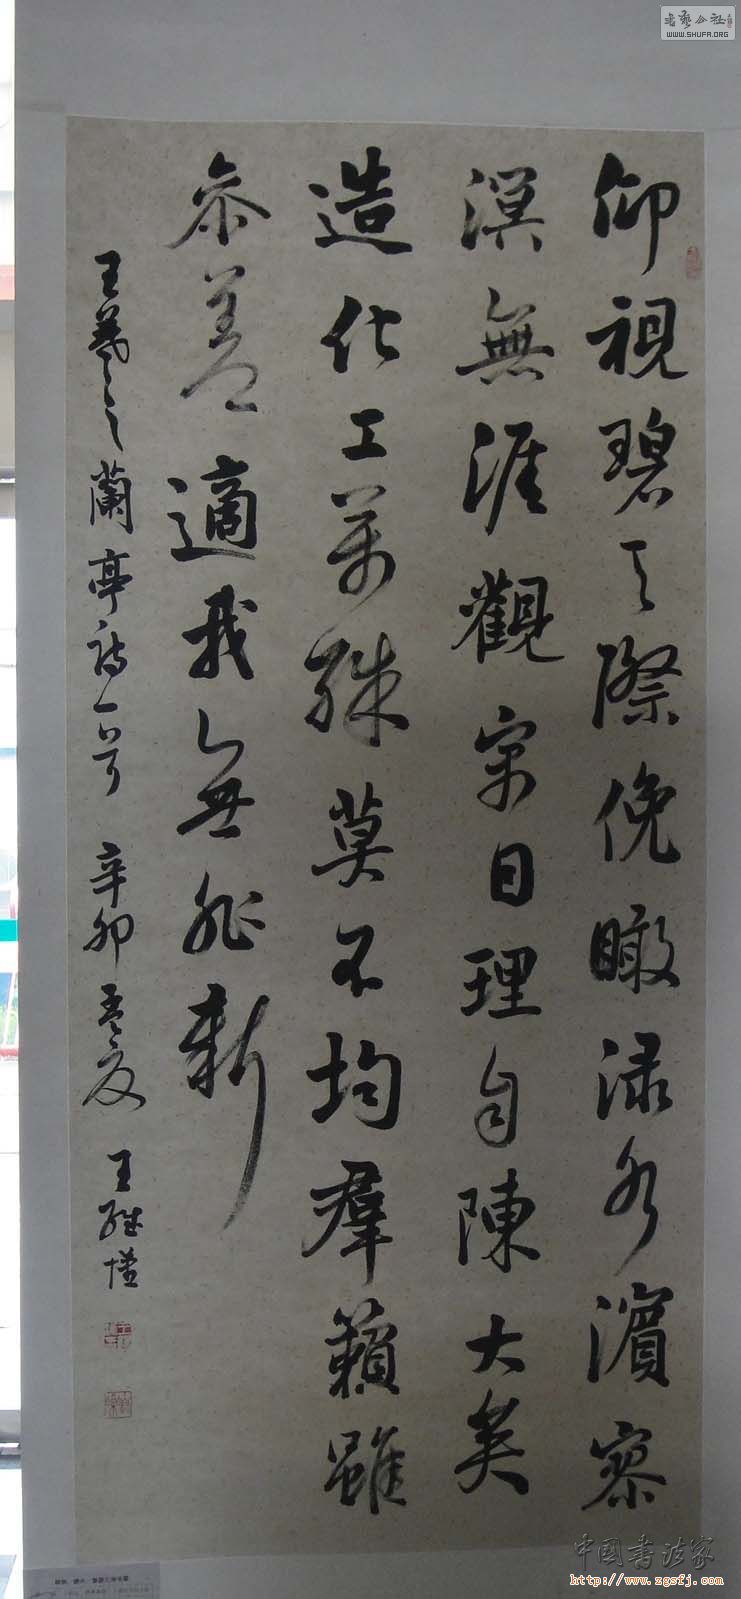 仰視碧天際俛瞰渌水濱寥
溟無涯觀寓目理自陳大矣
造化工萬殊莫不均群籟雖
參差適我無非新
王羲之蘭亭詩一首 辛卯孟夏 王继
書藝公社
WWW.SHUFA.ORG
中国书法家
http://www.zgsfj.com